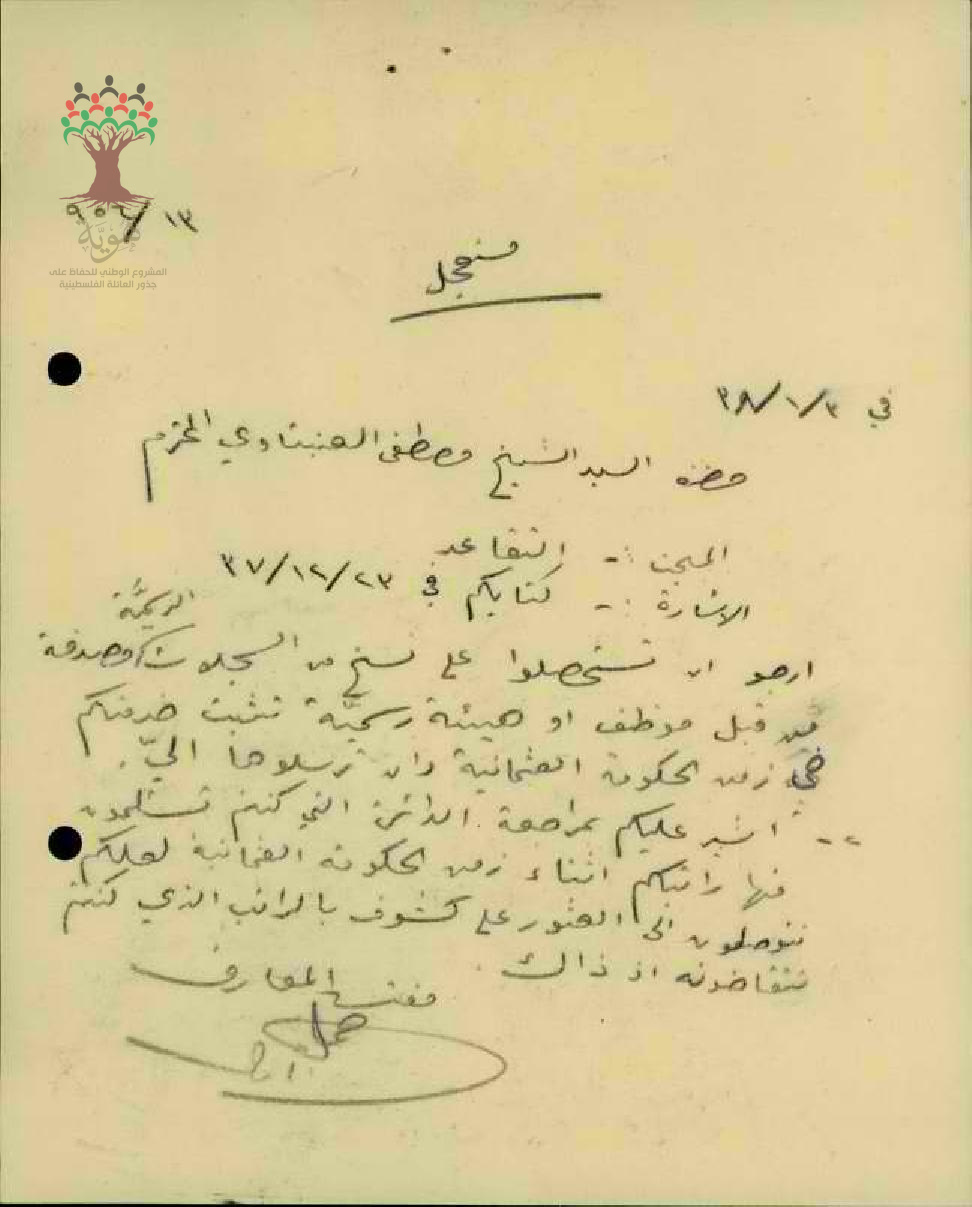 هويّة
المشروع الوطني للحفاظ على
جذور العائلة الفلسطينية
مستعجل
في ٣/١/٣٨
حضرة السيد الشيخ مصطفى العنبتاوي المحترم
المبحث :- التقاعد
الاشارة :- كتابكم في ٢٣/١٢/٣٧
ارجو ان تستحصلوا على نسخ من السجلات الرسميَّة ومصدقة
من قبل موظف او هيئة رسميَّة تثبت خدمتكم
في زمن الحكومة العثمانية وان ترسلوها اليّ.
٢- اشير عليكم بمراجعة الدائرة التي كنتم تستلمون
منها راتبكم اثناء زمن الحكومة العثمانية لعلكم
تتوصلون الى العثور على كشوف بالراتب الذي كنتم
تتقاضونه اذ ذاك.
مفتش المعارف